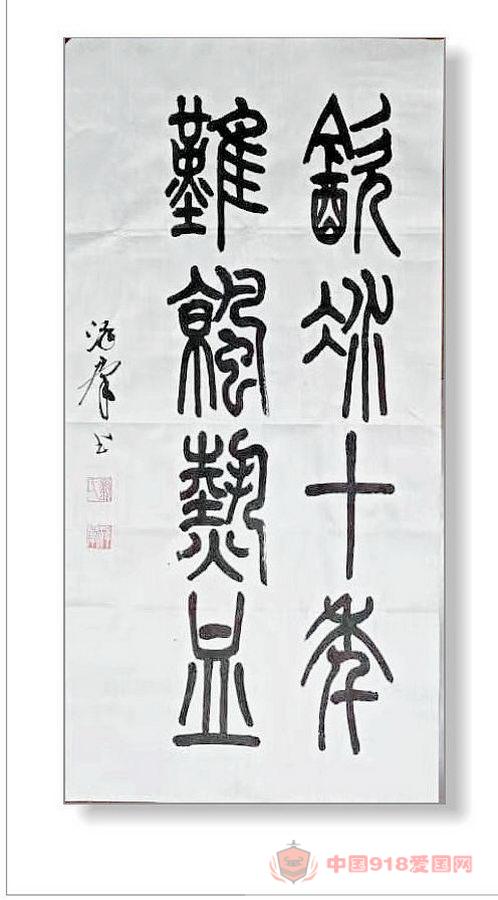 飲冰十年
難涼熱血
中国918爱国网